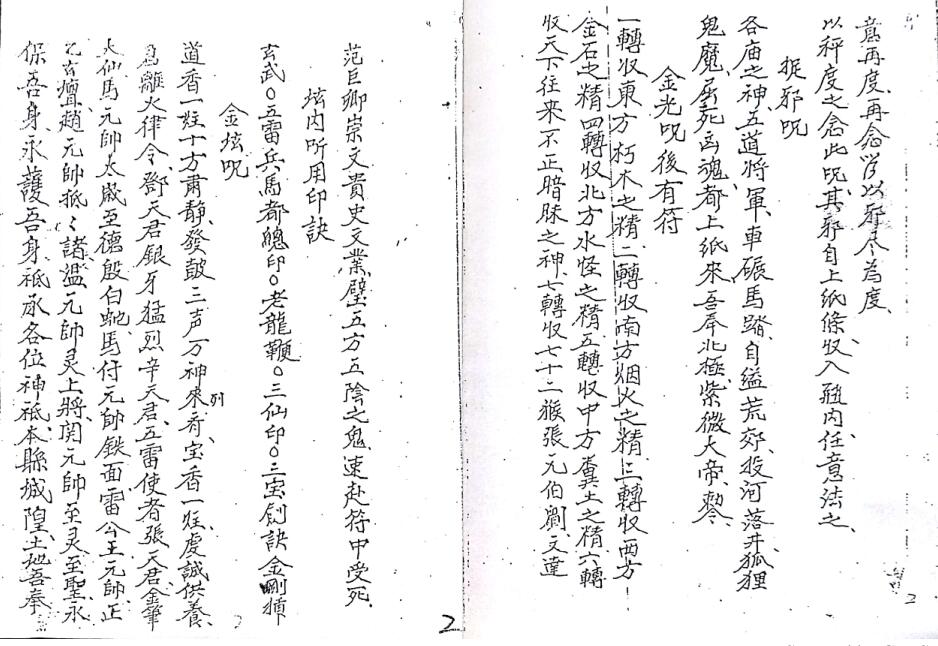 意再度再念咒以邪尽為度
以秤度之念此咒其邪自上纸條収入瓶内任意法之
捉邪咒
各庙之神五道将軍車碾馬踏自缢荒郊投河落井狐狸
鬼魔屈死凶魂都上纸來吾奉北極紫微大帝勅
金光咒後有符
一轉収東方朽木之精二轉収南方烟火之精三轉収西方
金石之精四轉収北方水怪之精五轉収中方糞土之精六轉
収天下往来不正暗昧之神七轉収七十二猴張元伯劉文達
2
范巨卿崇文貴史文業壁五方五陰之鬼速赴符中受死
坛内所用印訣
玄武〇五雷兵馬都總印〇老龍鞭〇三仙印〇三宝劍訣金剛插
金坛咒
道香一炷十方肃静發鼓三声万神來列寿宝香一炷虔誠供養
為離火律令鄧天君銀牙猛烈辛天君五雷使者張天君金筆
大仙馬元帥太歲至德殷白蛇馬付元帥鉄面雷公王元帥正
乙玄壇趙元帥抵々諸溫元帥灵上將関元帥至灵至聖永
保吾身永護吾身祗承各位神祗本縣城隍土地吾奉
2